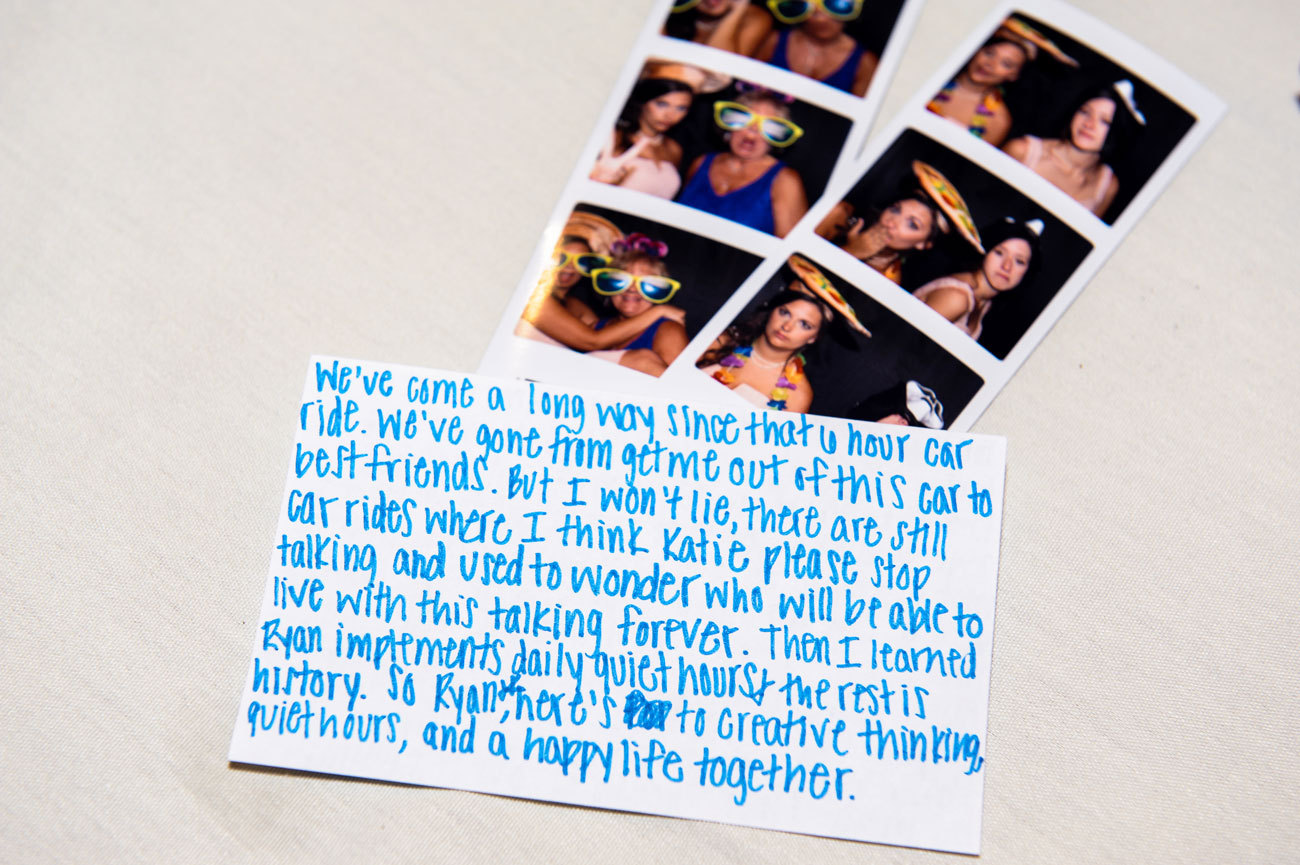 We've come a long way since that 6 hour car
ride. We've gone from get me out of this car to
best friends. But I won't lie, there are still
car rides where I think Katie please stop
talking and used to wonder who will be able to
live with this talking forever. Then I learned
Ryan implements daily quiet hours & the rest is
history. So Ryan, here's to creative thinking,
quiet hours, and a happy life together.